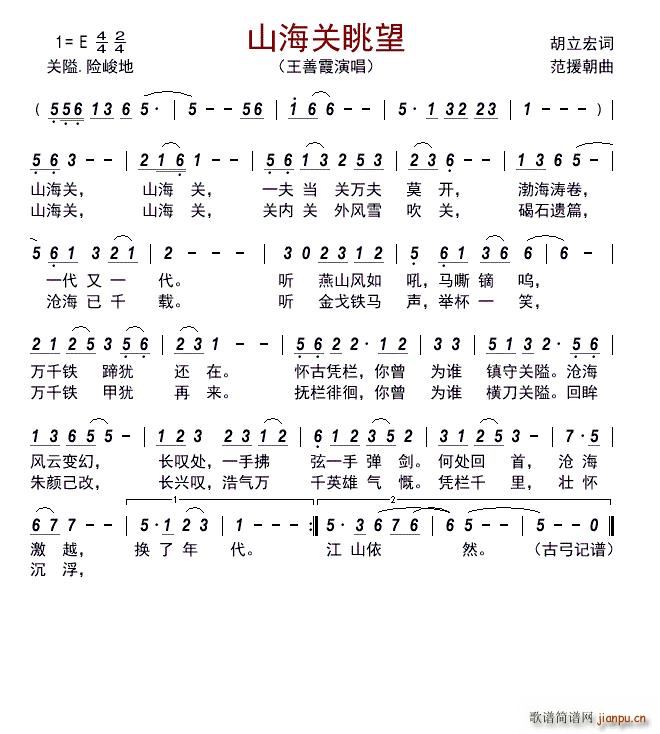 山海关眺望
1= E 4/4 2/4
胡立宏词
关隘.险峻地
（王善霞演唱）
范援朝曲
( 556 136 5· | 5 - - 56 | i 6 6 - - | 5· 1 32 23 )
5 6 3 - - | 2 1 6 1 - - | 5 6 1 3 2 5 3 | 2 3 6 - - | 1 3 6 5 - |
山海关， 山海 关， 一夫 当 关万夫 莫 开， 渤海涛卷，
山海关， 山海 关， 关内 关 外风雪 吹 关， 碣石遗篇，
5 6 1 3 2 1 | 2 - - | 3 0 2 3 1 2 | 5· 6 1 3 6 6 - | 6 - |
一代 又 一 代。 听 燕山风如 吼，马嘶 镝 鸣，
沧海 已 千 载。 听 金戈铁马 声，举杯 一 笑，
2 1 2 5 3 5 6 | 2 3 1 - | 5 6 2 1 2· 1 2 | 3 3 5 1 3 2 5 6 |
万千铁 蹄犹 还 在。 怀古凭栏，你曾 为谁 镇守关隘。沧海
万千铁 甲犹 再 来。 抚栏徘徊，你曾 为谁 横刀关隘。回眸
1 3 6 5 5 - | 1 2 3 - 2 2 3 | 6 1 2 3 5 2 | 1 2 5 3 - | 7· 5
风云变幻， 长叹处，一手拂 弦一手 弹 剑。何处回 首，沧 海
朱颜己改， 长兴叹，浩气万 千英雄 气 慨。凭栏千 里，壮 怀
1 2
6 7 - | 5· 1 2 3 | 1 - - - :| 5· 3 6 7 6 | 6 5 - - | 5 - - 0 ‖
激 越， 换 了 年 代。 江 山依 然。 （古弓记谱）
沉 浮，
歌谱简谱网
jianpu.cn